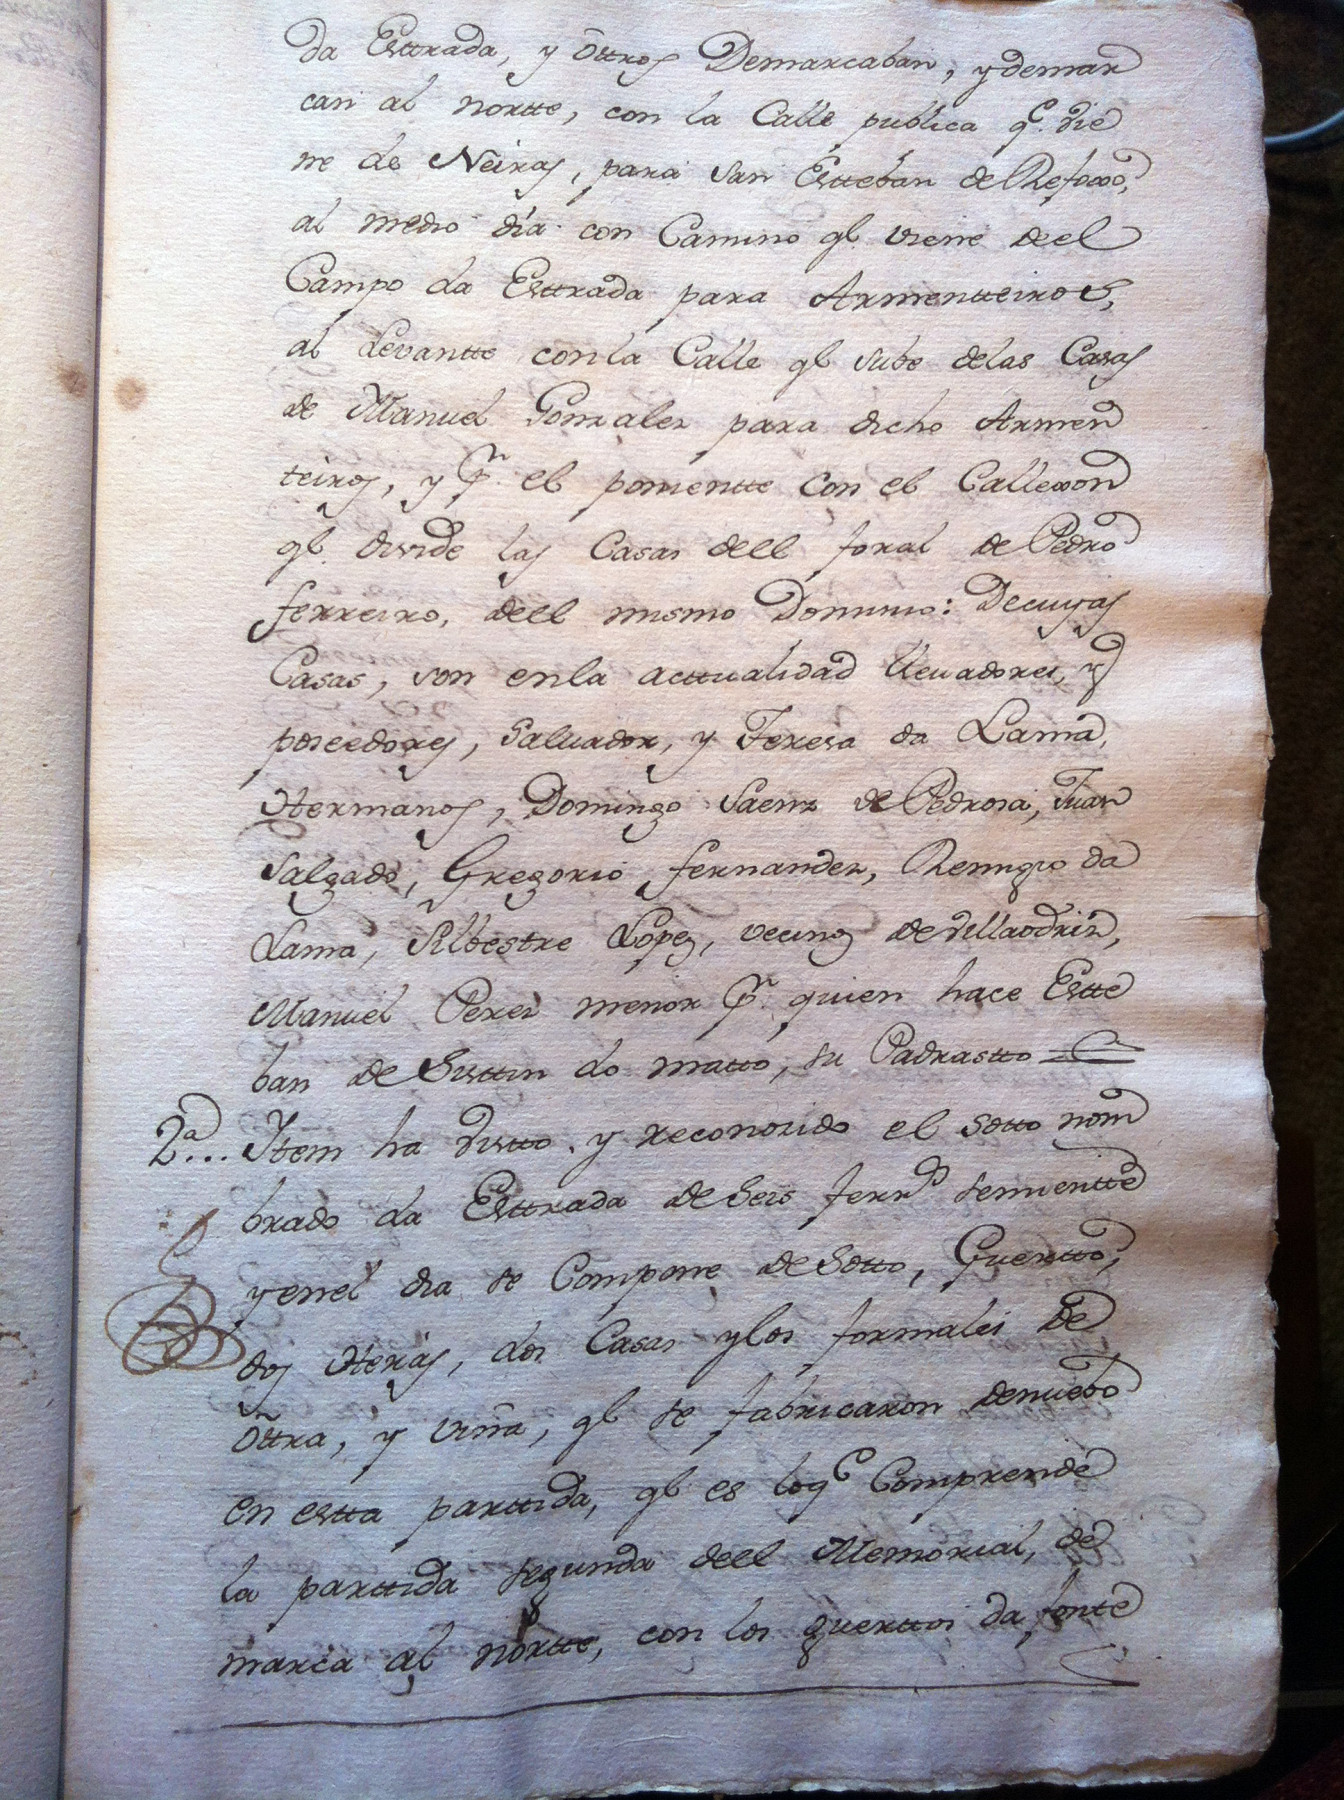 da Esttrada, y ôttros Demarcaban, y demar
can al nortte, con la Calle publica q.e vie
ne de Neiras, para San Estteban de Refoxo,
al medio día con Camino ql. viene deel
Campo da Esttrada para Armentteiros,
al Levantte con la Calle ql sube delas Casas
de Manuel Gonzalez para dicho Armen
teiros, y p.r el ponientte con el Callexon
ql. divide las Casas dell foral de Pedro
ferreiro, deel mismo Dominio: Decuyas
Casas, son enla acttualidad llevadores, y
poseedores, Salvador, y Teresa da Lama,
Hermanos, Domingo Saenz de Pedrosa, Juan
Salgado, Gregorio fernandez, Remigio da
Lama, Silbestre Lopez, vecinos de Villaodriz,
Manuel Perez menor p.r quien hace Estte
ban de Susttin do matto, su Padrastto
2.a... Ittem ha vistto y reconozido el Sotto nom
brado da Esttrada de Seis ferr.s sementte
y enel dia se Compone de Sotto, Guertto,
dos Heras, dos Casas y los formales de
ôttra, y viña, ql se fabricaron denuebo
en estta parttida, ql es loq.e Comprende
la parttida segunda deel Memorial, de
marca al nortte, con los guerttos da fonte